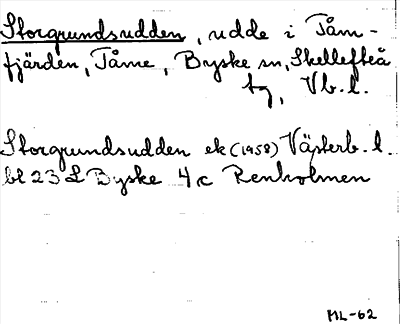 Storgrundsudden, udde i Tåm-
fjärden, Tåme, Byske sn, Skellefteå
tg, Vb. l.
Storgrundsudden ek (1958) Västerb. l.
bl 23 L Byske 4 c Renholmen
ML-62